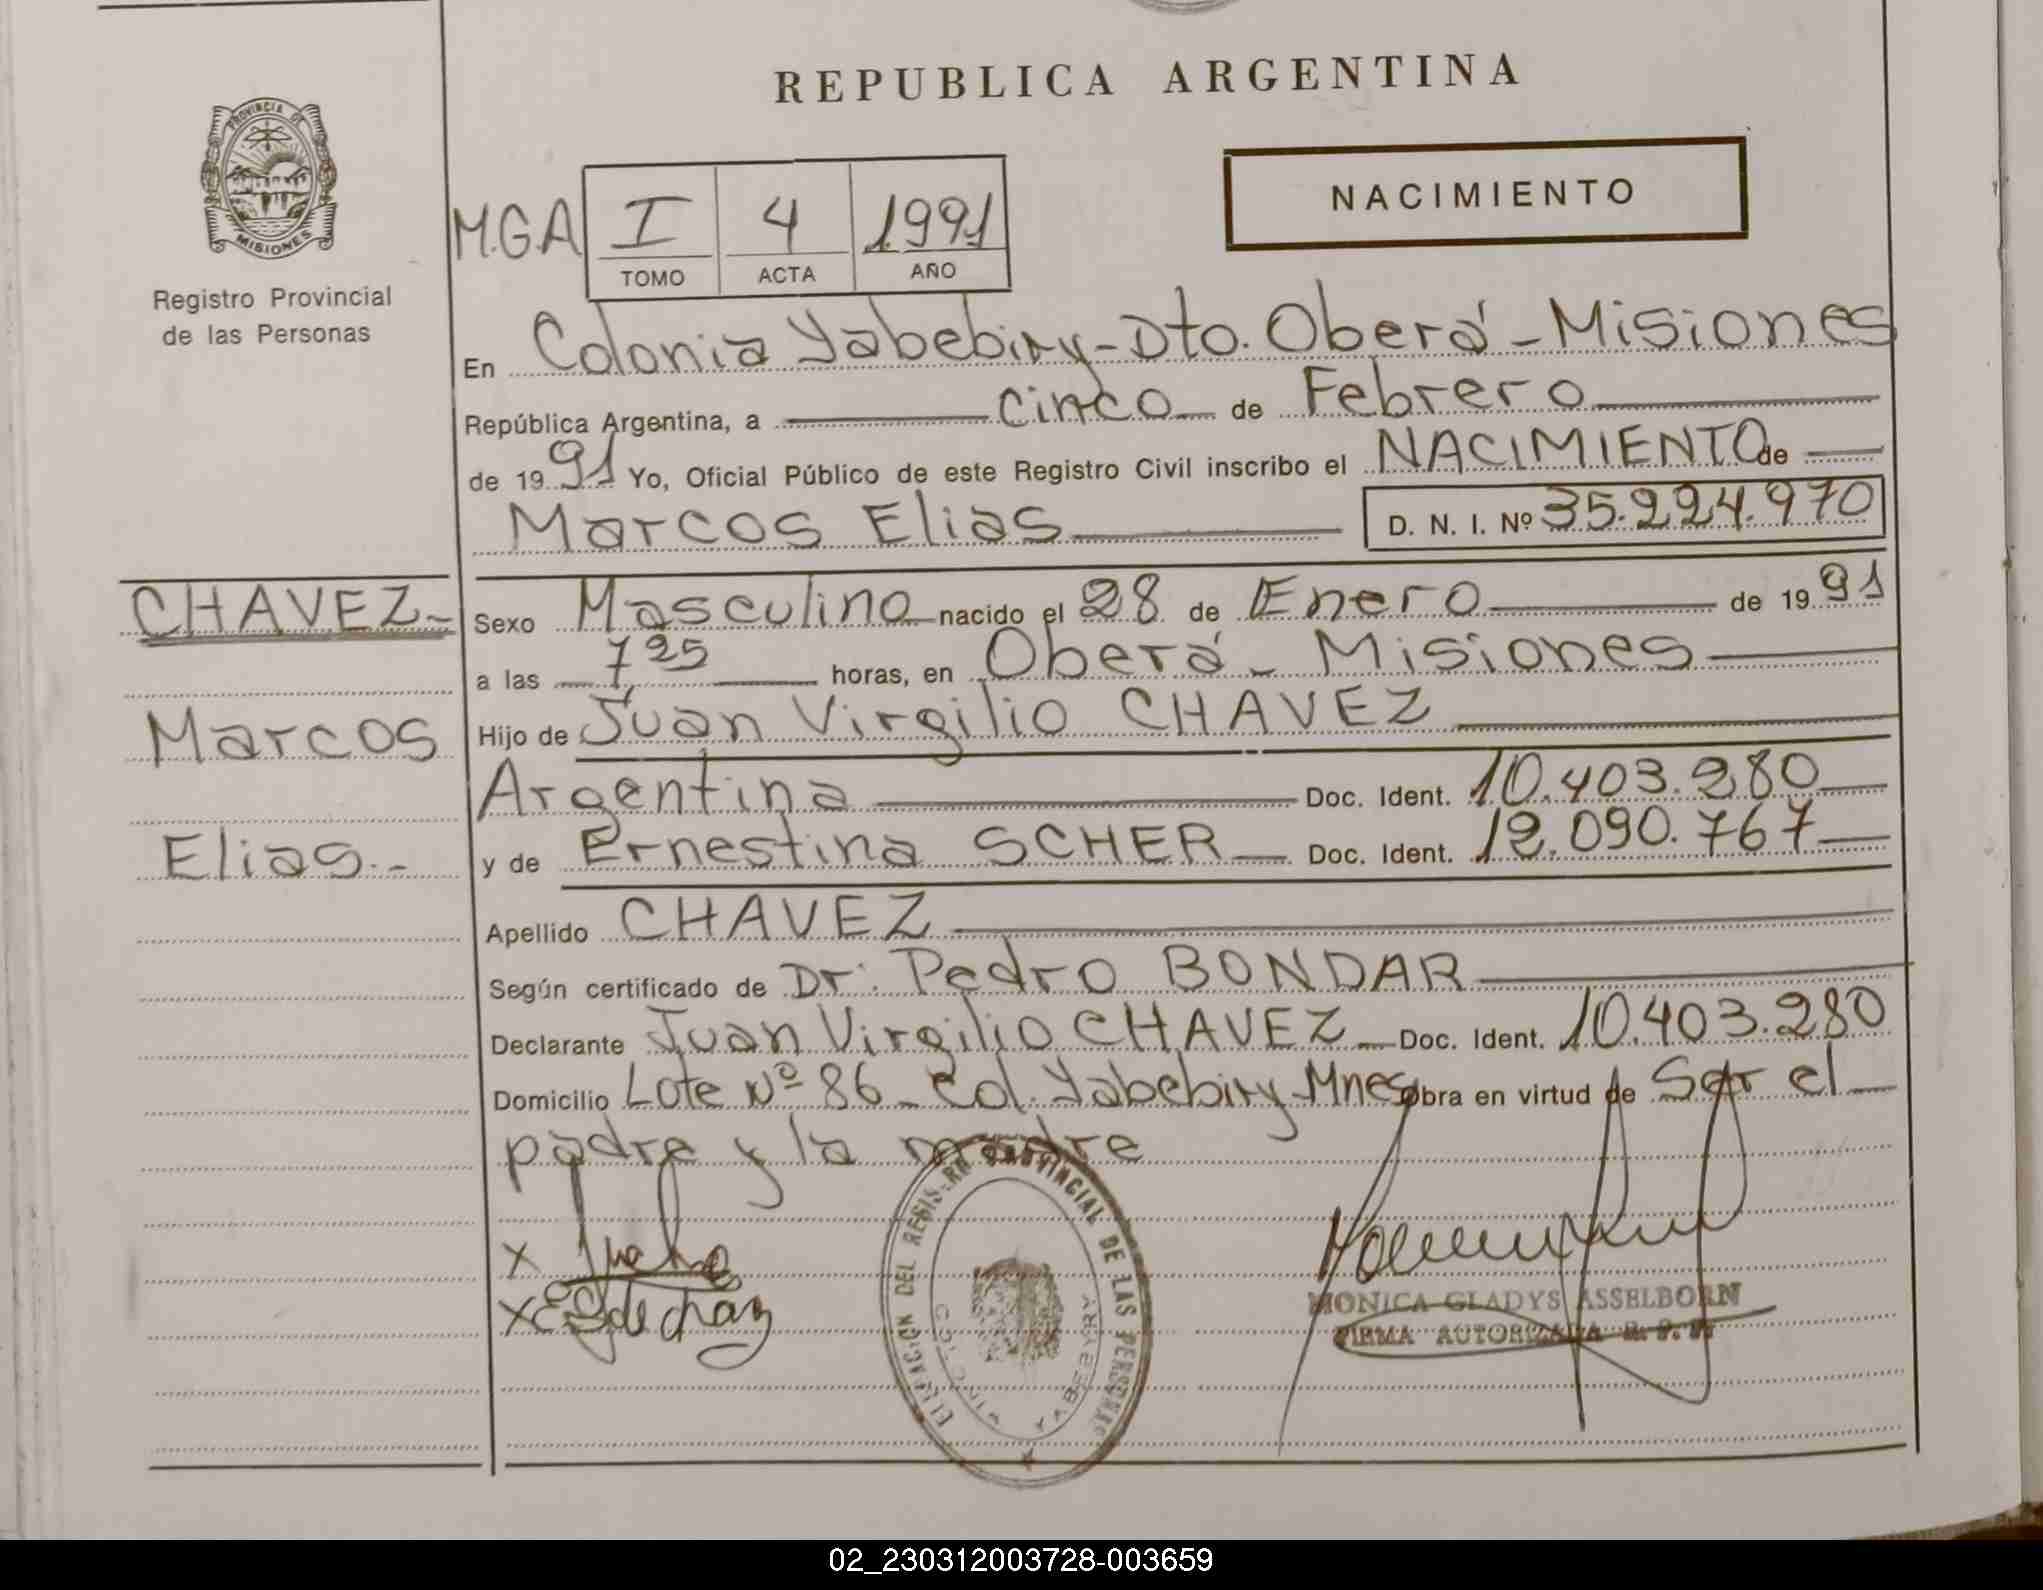 REPUBLICA ARGENTINA
PROVINCIA DE
MISIONES
Registro Provincial
de las Personas
NACIMIENTO
M.G.A
I 4 1991
TOMO ACTA AÑO
En Colonia Yabebiry - Dto. Oberá - Misiones
República Argentina, a cinco de Febrero
de 1991 Yo, Oficial Público de este Registro Civil inscribo el NACIMIENTO de
Marcos Elias D. N. I. Nº 35.224.970
CHAVEZ-
Marcos
Elias.-
Sexo Masculino nacido el 28 de Enero de 1991
a las 7 25 horas, en Oberá - Misiones
Hijo de Juan Virgilio CHAVEZ
Argentina Doc. Ident. 10.403.280
y de Ernestina SCHER Doc. Ident. 12.090.767
Apellido CHAVEZ
Según certificado de Dr: Pedro BONDAR
Declarante Juan Virgilio CHAVEZ Doc. Ident. 10.403.280
Domicilio Lote Nº 86 - Col. Yabebiry Mnes obra en virtud de Ser el
padre y la madre
X
X
DEL REGISTRO PROVINCIAL DE LAS PERSONAS
COLONIA YABEBYRY
MONICA GLADYS ASSELBORN
FIRMA AUTORIZADA R. P. P.
02_230312003728-003659